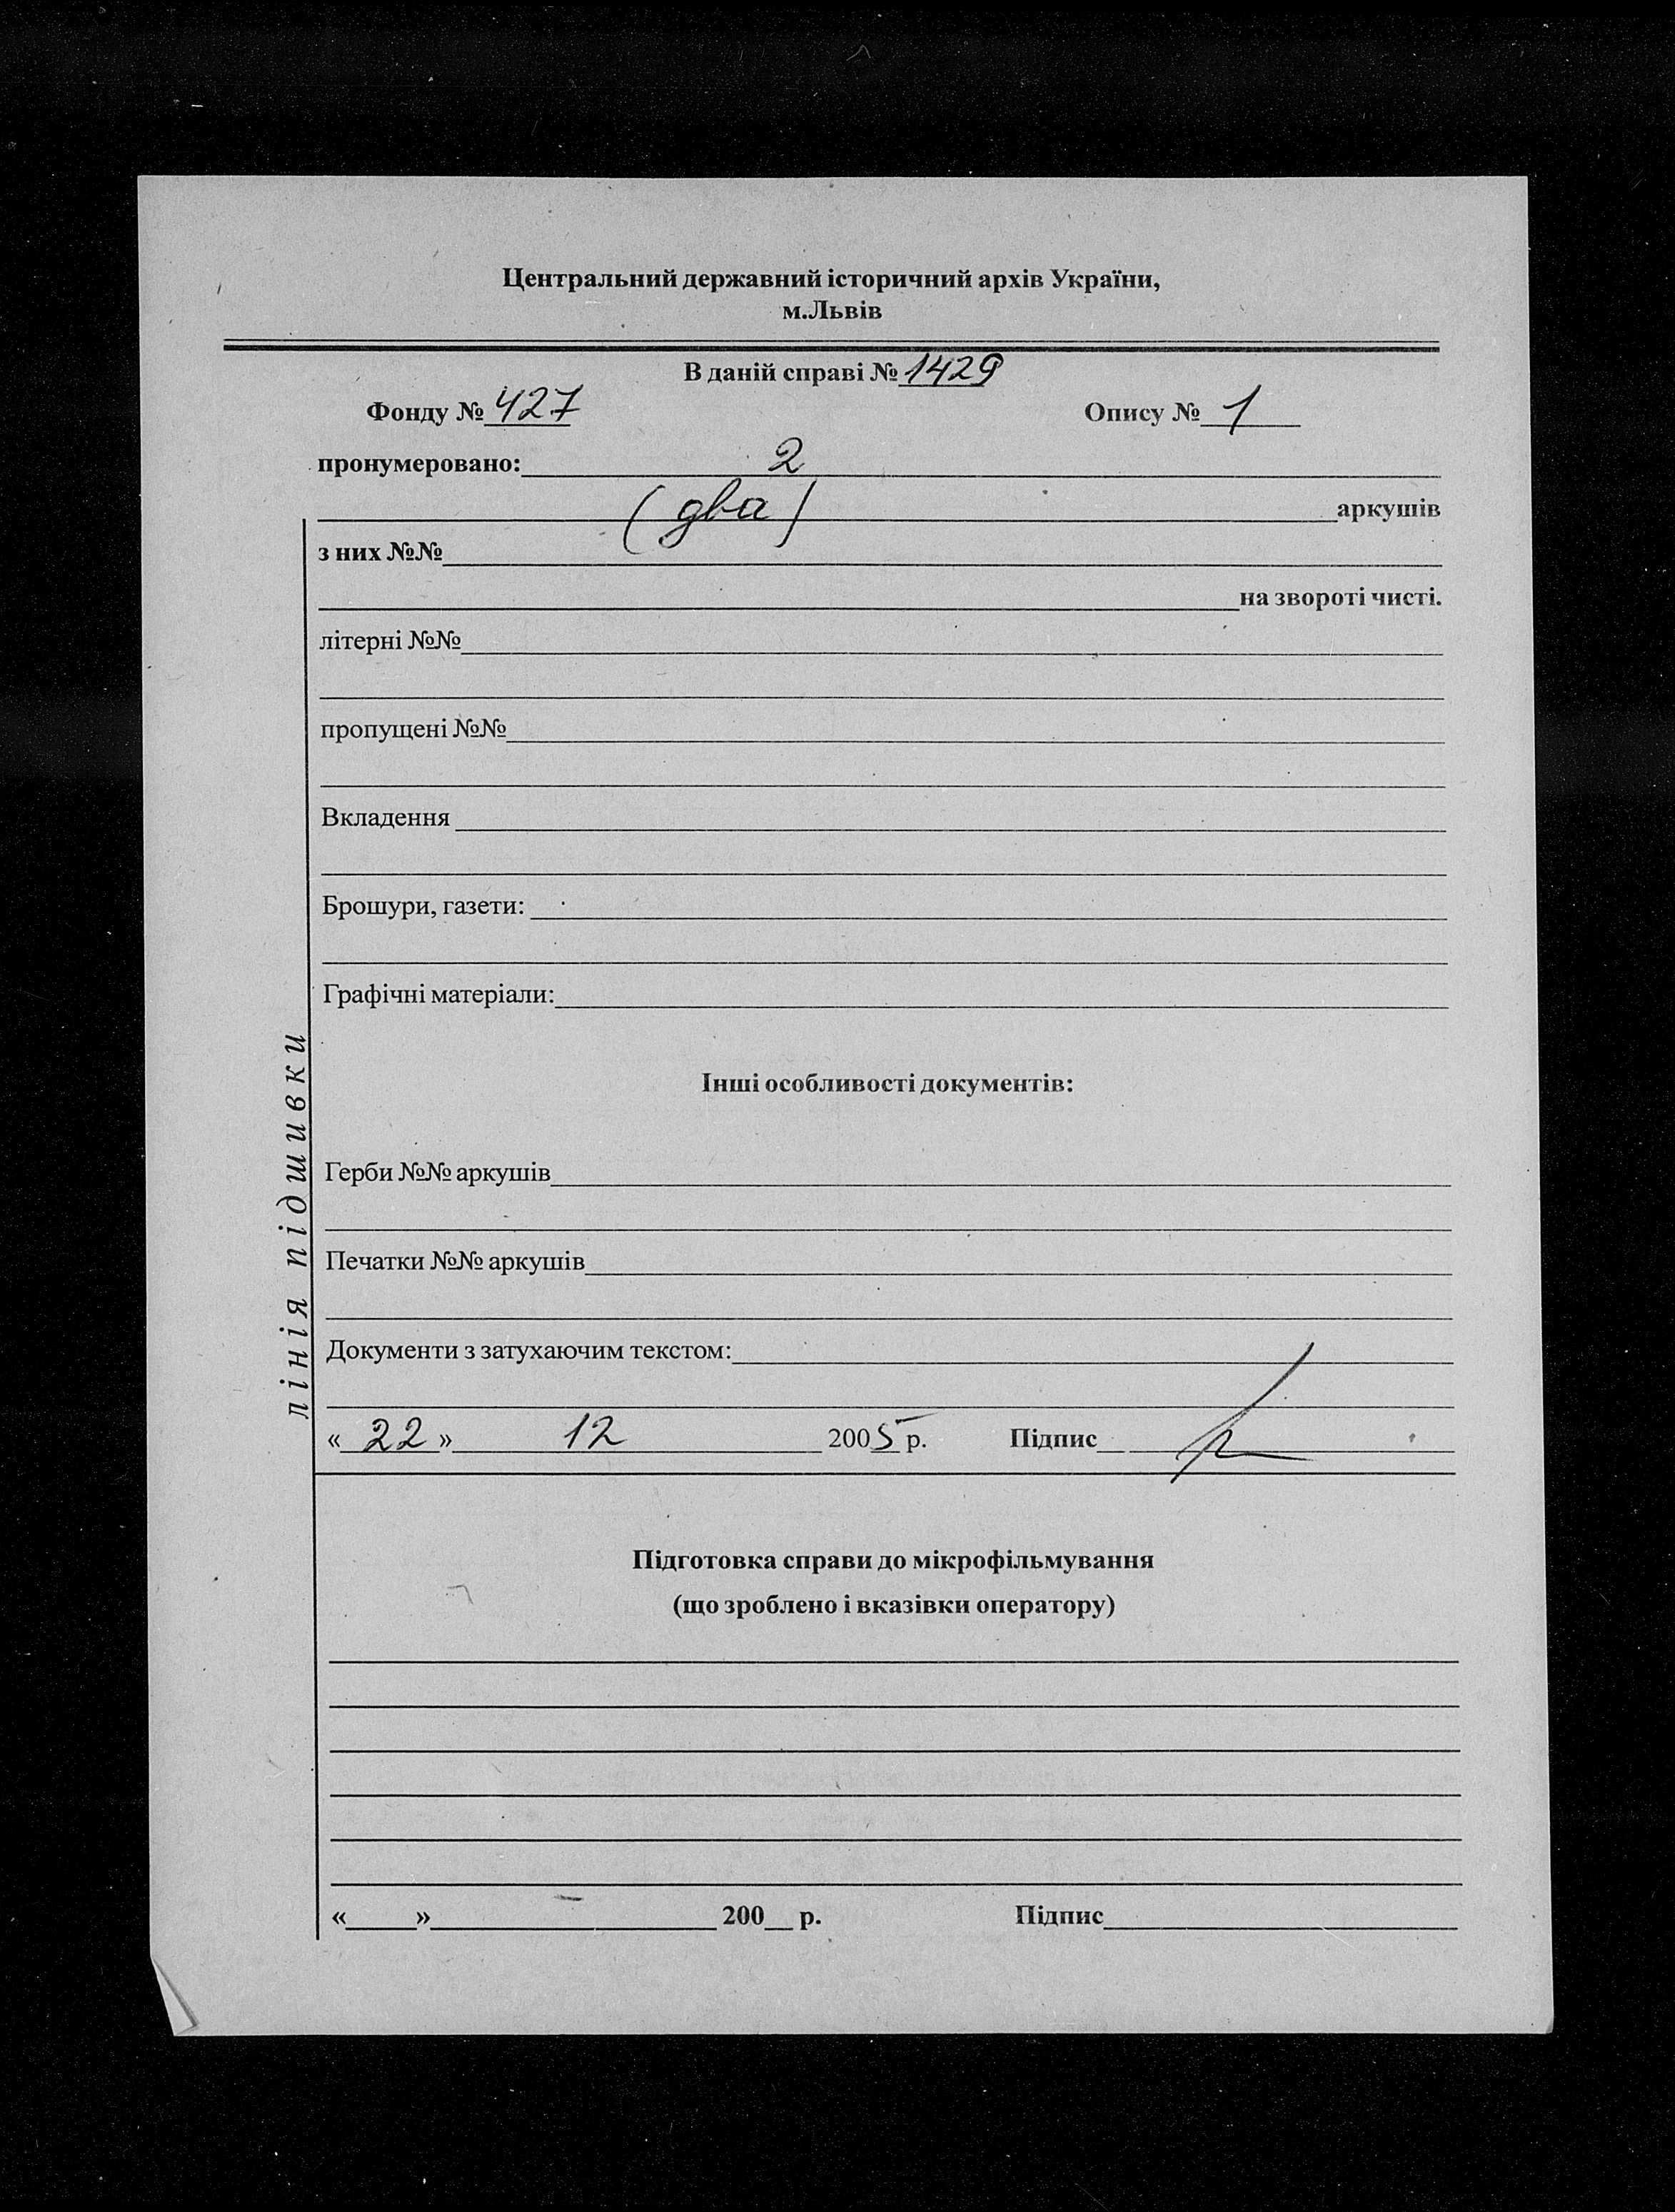 Центральний державний історичний архів України,
м.Львів
В даній справі № 1429
Фонду № 427 Опису № 1
пронумеровано: 2
(два) аркушів
з них №№
на звороті чисті.
літерні №№
пропущені №№
Вкладення
Брошури, газети:
Графічні матеріали:
Інші особливості документів:
Герби №№ аркушів
Печатки №№ аркушів
Документи з затухаючим текстом:
« 22 » 12 2005 р. Підпис
лінія підшивки
Підготовка справи до мікрофільмування
(що зроблено і вказівки оператору)
« » 200 р. Підпис